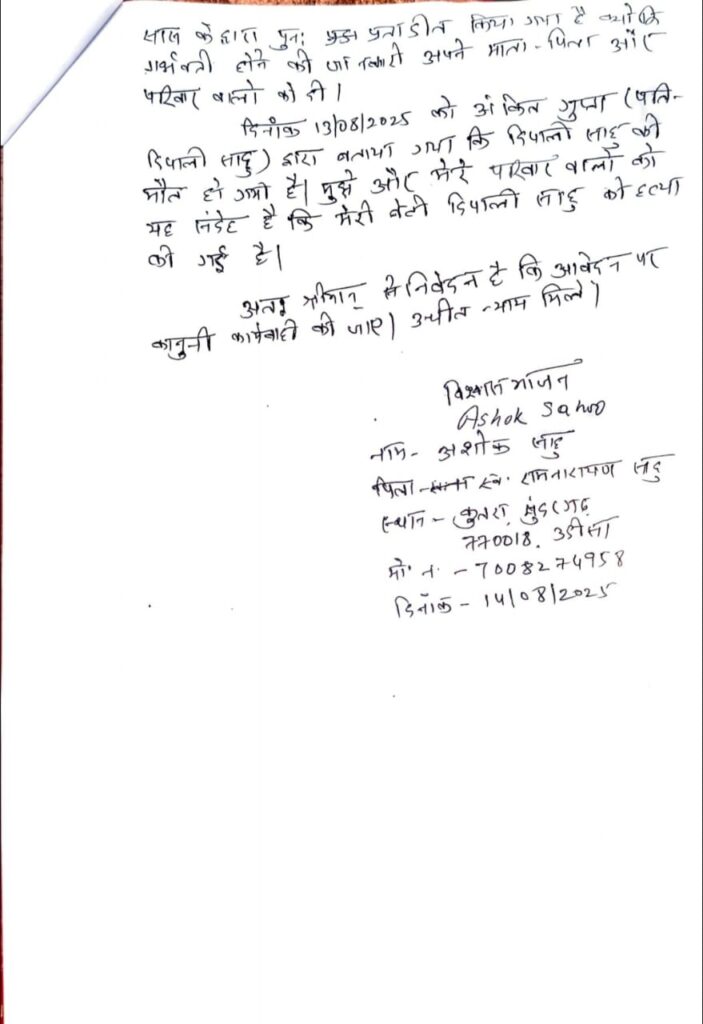 सास के द्वारा पुनः प्रताडीत किया गया है क्योंकि
गर्भवती होने की जानकारी अपने माता-पिता और
परिवार वालो को दी।
दिनाँक 13/08/2025 को अंकित गुप्ता (पति-
दिपाली साहु) द्वारा बताया गया कि दिपाली साहु की
मौत हो गयी है। मुझे और मेरे परिवार वालो को
यह संदेह है कि मेरी बेटी दिपाली साहु की हत्या
की गई है।
अतः श्रीमान् से निवेदन है कि आवेदन पर
कानुनी कार्यवाही की जाए। उचीत न्याय मिले।
विश्वासभाजन
Ashok Sahoo
नाम- अशोक साहु
पिता- स्व. रामनारायण साहु
स्थान- कुतरा, सुंदरगढ़
770018. उडीसा
मो. न. - 7008274958
दिनाँक - 14/08/2025